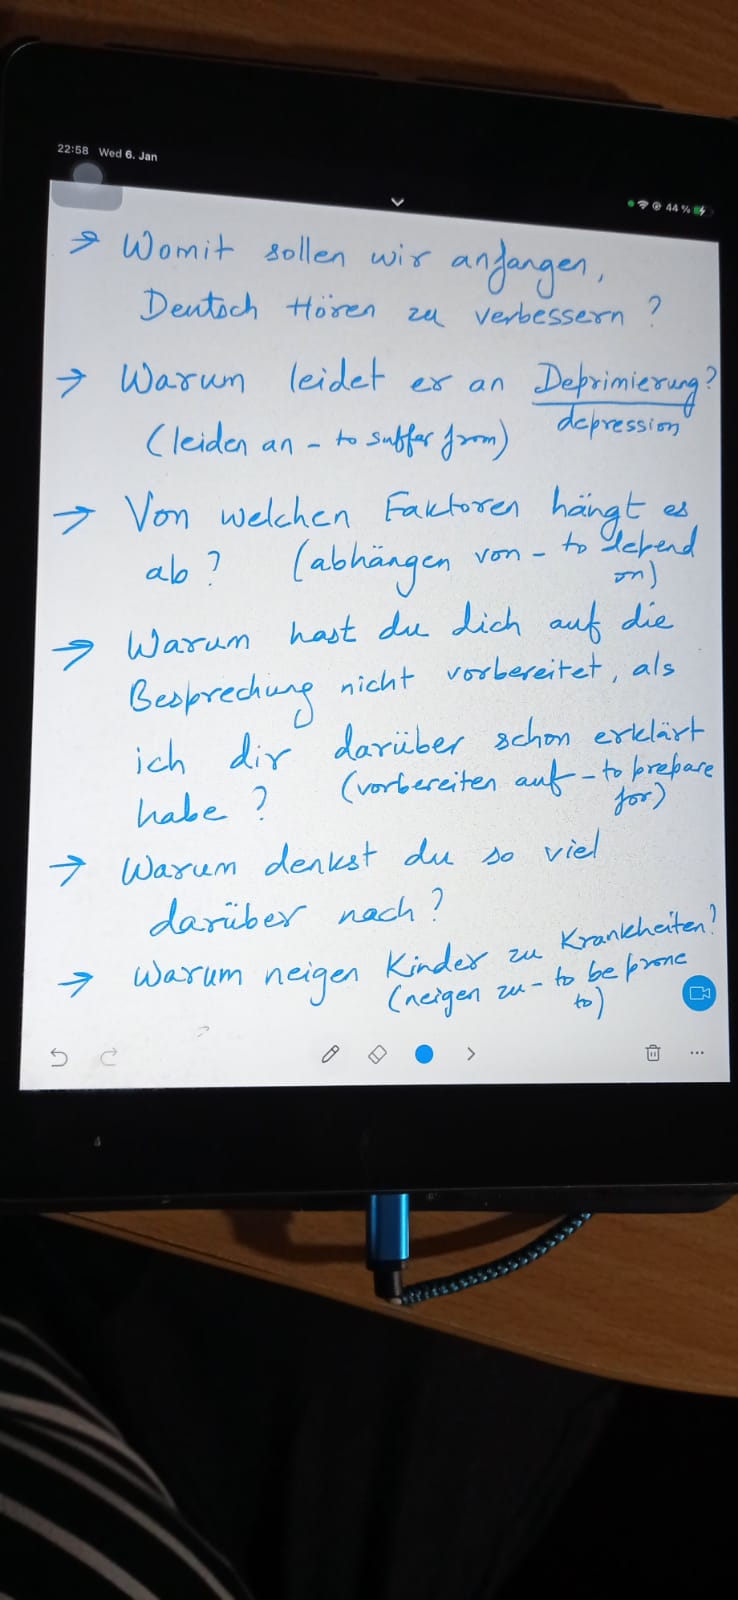 22:58 Wed 6. Jan
44 %
→ Womit sollen wir anfangen,
Deutsch Hören zu verbessern ?
→ Warum leidet er an Deprimierung?
(leiden an - to suffer from) depression
→ Von welchen Faktoren hängt es
ab ? (abhängen von - to depend
on)
→ Warum hast du dich auf die
Besprechung nicht vorbereitet, als
ich dir darüber schon erklärt
habe ? (vorbereiten auf - to prepare
for)
→ Warum denkst du so viel
darüber nach ?
→ Warum neigen Kinder zu Krankheiten?
(neigen zu - to be prone
to)